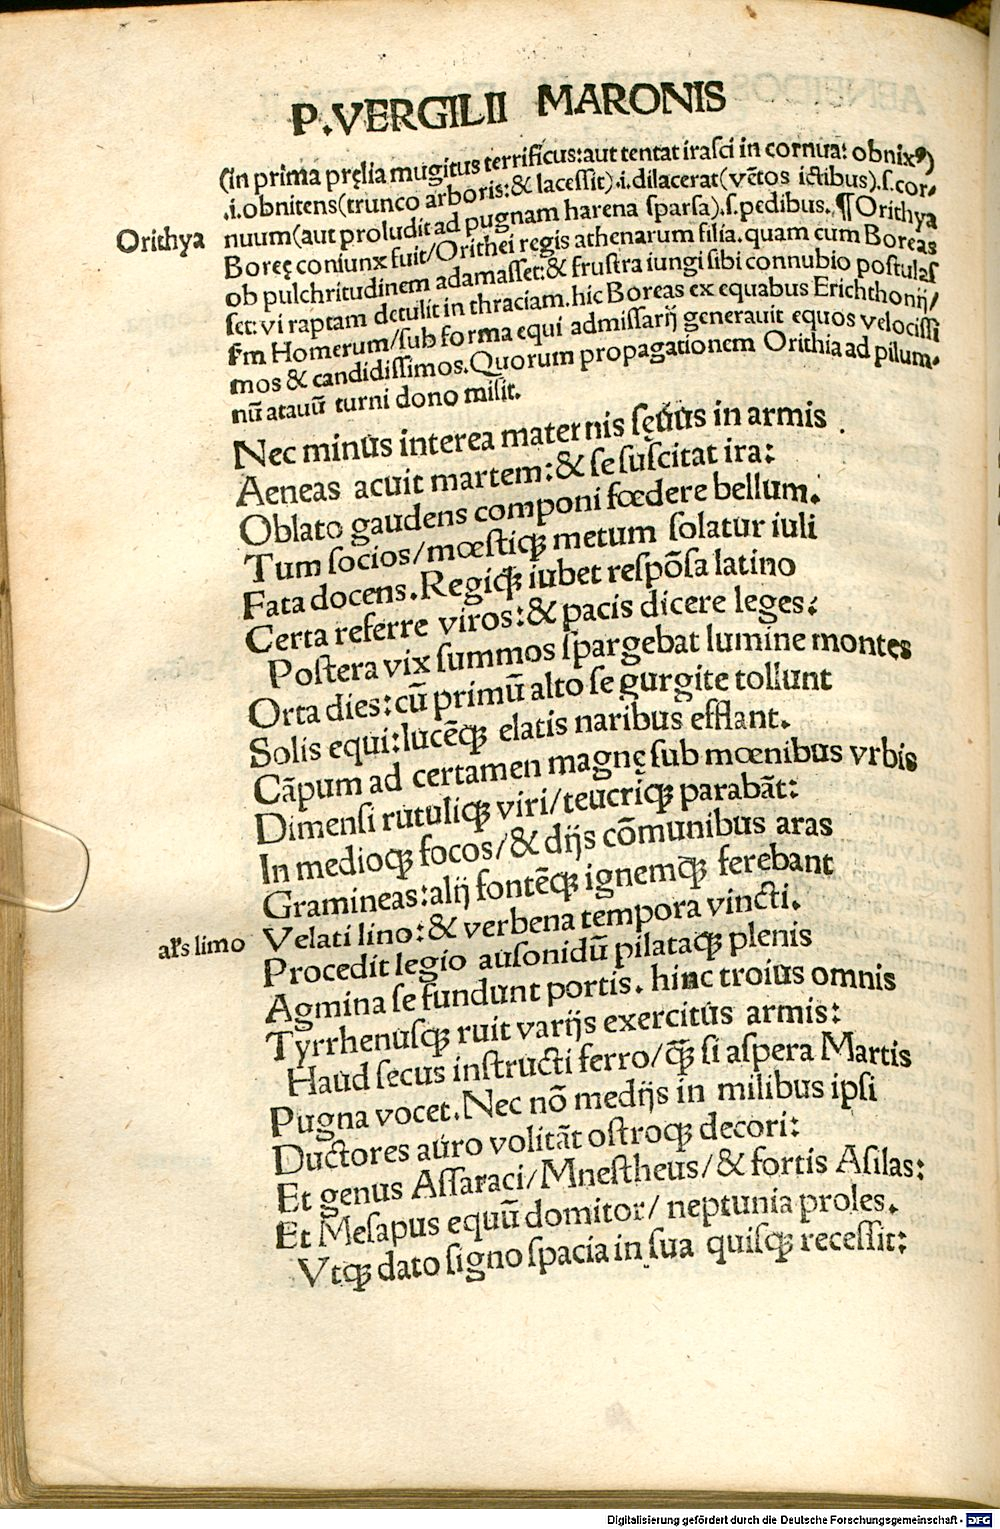 P. VERGILII MARONIS
(in prima pręlia mugitus terrificus: aut tentat irasci in cornua: obnixꝰ)
.i. obnitens (trunco arboris: & lacessit) .i. dilacerat (vētos ictibus) .s. cor-
Orithya
nuum (aut proludit ad pugnam harena sparsa) .s. pedibus. ¶ Orithya
Boreę coniunx fuit / Orithei regis athenarum filia. quam cum Boreas
ob pulchritudinem adamasset: & frustra iungi sibi connubio postulas
set: vi raptam detulit in thraciam. hic Boreas ex equabus Erichthonij /
fm Homerum / sub forma equi admissarij generauit equos velocissi
mos & candidissimos. Quorum propagationem Orithia ad pilum-
nū atauū turni dono misit.
Nec minus interea maternis sęuus in armis
Aeneas acuit martem: & se suscitat ira:
Oblato gaudens componi fœdere bellum.
Tum socios / mœstiqꝫ metum solatur iuli
Fata docens. Regiqꝫ iubet respōsa latino
Certa referre viros: & pacis dicere leges:
Postera vix summos spargebat lumine montes
Orta dies: cū primū alto se gurgite tollunt
Solis equi: lucēqꝫ elatis naribus efflant.
Cāpum ad certamen magnę sub mœnibus vrbis
Dimensi rutuliqꝫ viri / teucriqꝫ parabāt:
In medioqꝫ focos / & dijs cōmunibus aras
Gramineas: alij fontēqꝫ ignemqꝫ ferebant
al's limo
Velati lino: & verbena tempora vincti.
Procedit legio ausonidū pilataqꝫ plenis
Agmina se fundunt portis. hinc troius omnis
Tyrrhenusqꝫ ruit varijs exercitus armis:
Haud secus instructi ferro / q̄ꝫ si aspera Martis
Pugna vocet. Nec nō medijs in milibus ipsi
Ductores auro volitāt ostroqꝫ decori:
Et genus Assaraci / Mnestheus / & fortis Asilas:
Et Mesapus equū domitor / neptunia proles.
Vtqꝫ dato signo spacia in sua quisqꝫ recessit:
Digitalisierung gefördert durch die Deutsche Forschungsgemeinschaft - DFG